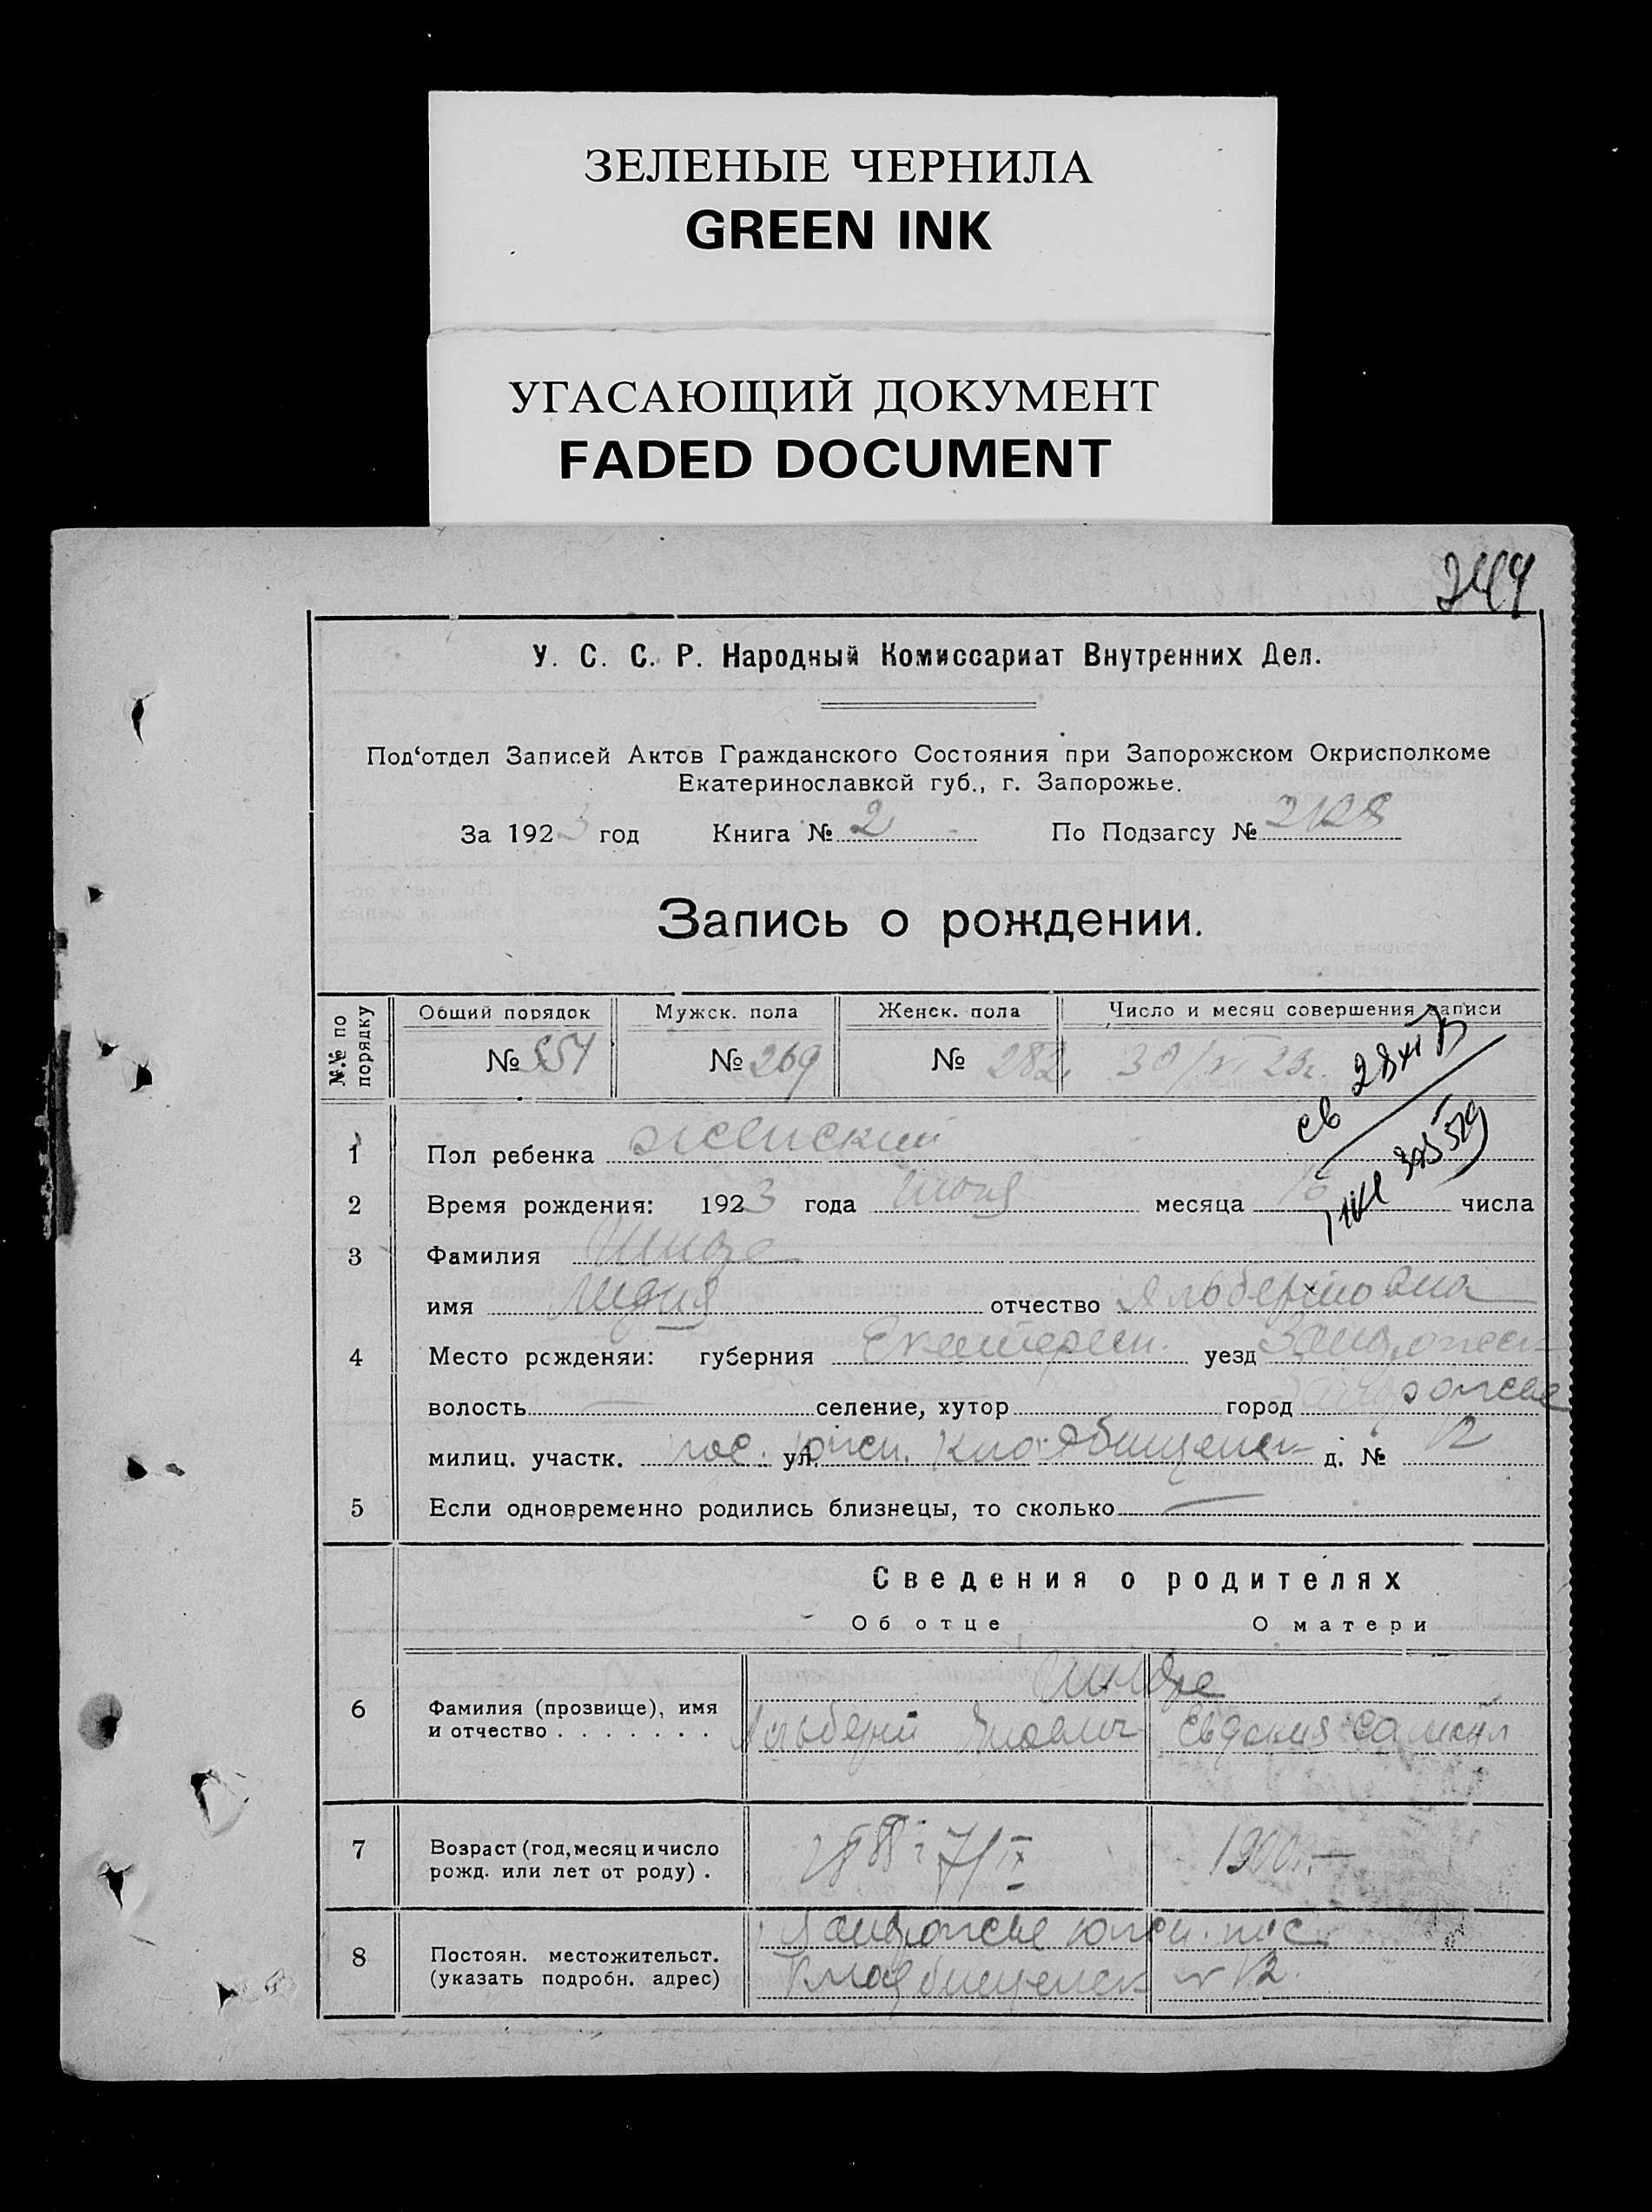 ЗЕЛЕНЫЕ ЧЕРНИЛА
GREEN INK
УГАСАЮЩИЙ ДОКУМЕНТ
FADED DOCUMENT
244
У. С. С. Р. Народный Комиссариат Внутренних Дел.
Под‘отдел Записей Актов Гражданского Состояния при Запорожском Окрисполкоме
Екатеринославкой губ., г. Запорожье.
За 1923 год Книга № 2 По Подзагсу №
Запись о рождении.
№.№ по порядку
Общий порядок Мужск. пола Женск. пола Число и месяц совершения записи
№ 551 № 269 № 282 30/VI 23г.
1 Пол ребенка женский
2 Время рождения: 1923 года месяца числа
3 Фамилия
имя Лидия отчество Альбертовна
4 Место рсжденяи: губерния Екатерин. уезд Запорожск
волость селение, хутор город Запорожье
милиц. участк. пос. ул. Южн. Кладбищенск д. № 12
5 Если одновременно родились близнецы, то сколько —
Сведения о родителях
Об отце О матери
6 Фамилия (прозвище), имя
и отчество . . . . . . .
Альберт Евдокия Самойл
7 Возраст (год, месяц и число
рожд. или лет от роду) .
1900г. —
8 Постоян. местожительст.
(указать подробн. адрес)
Запорожье южн. пос.
Кладбищенск № 12